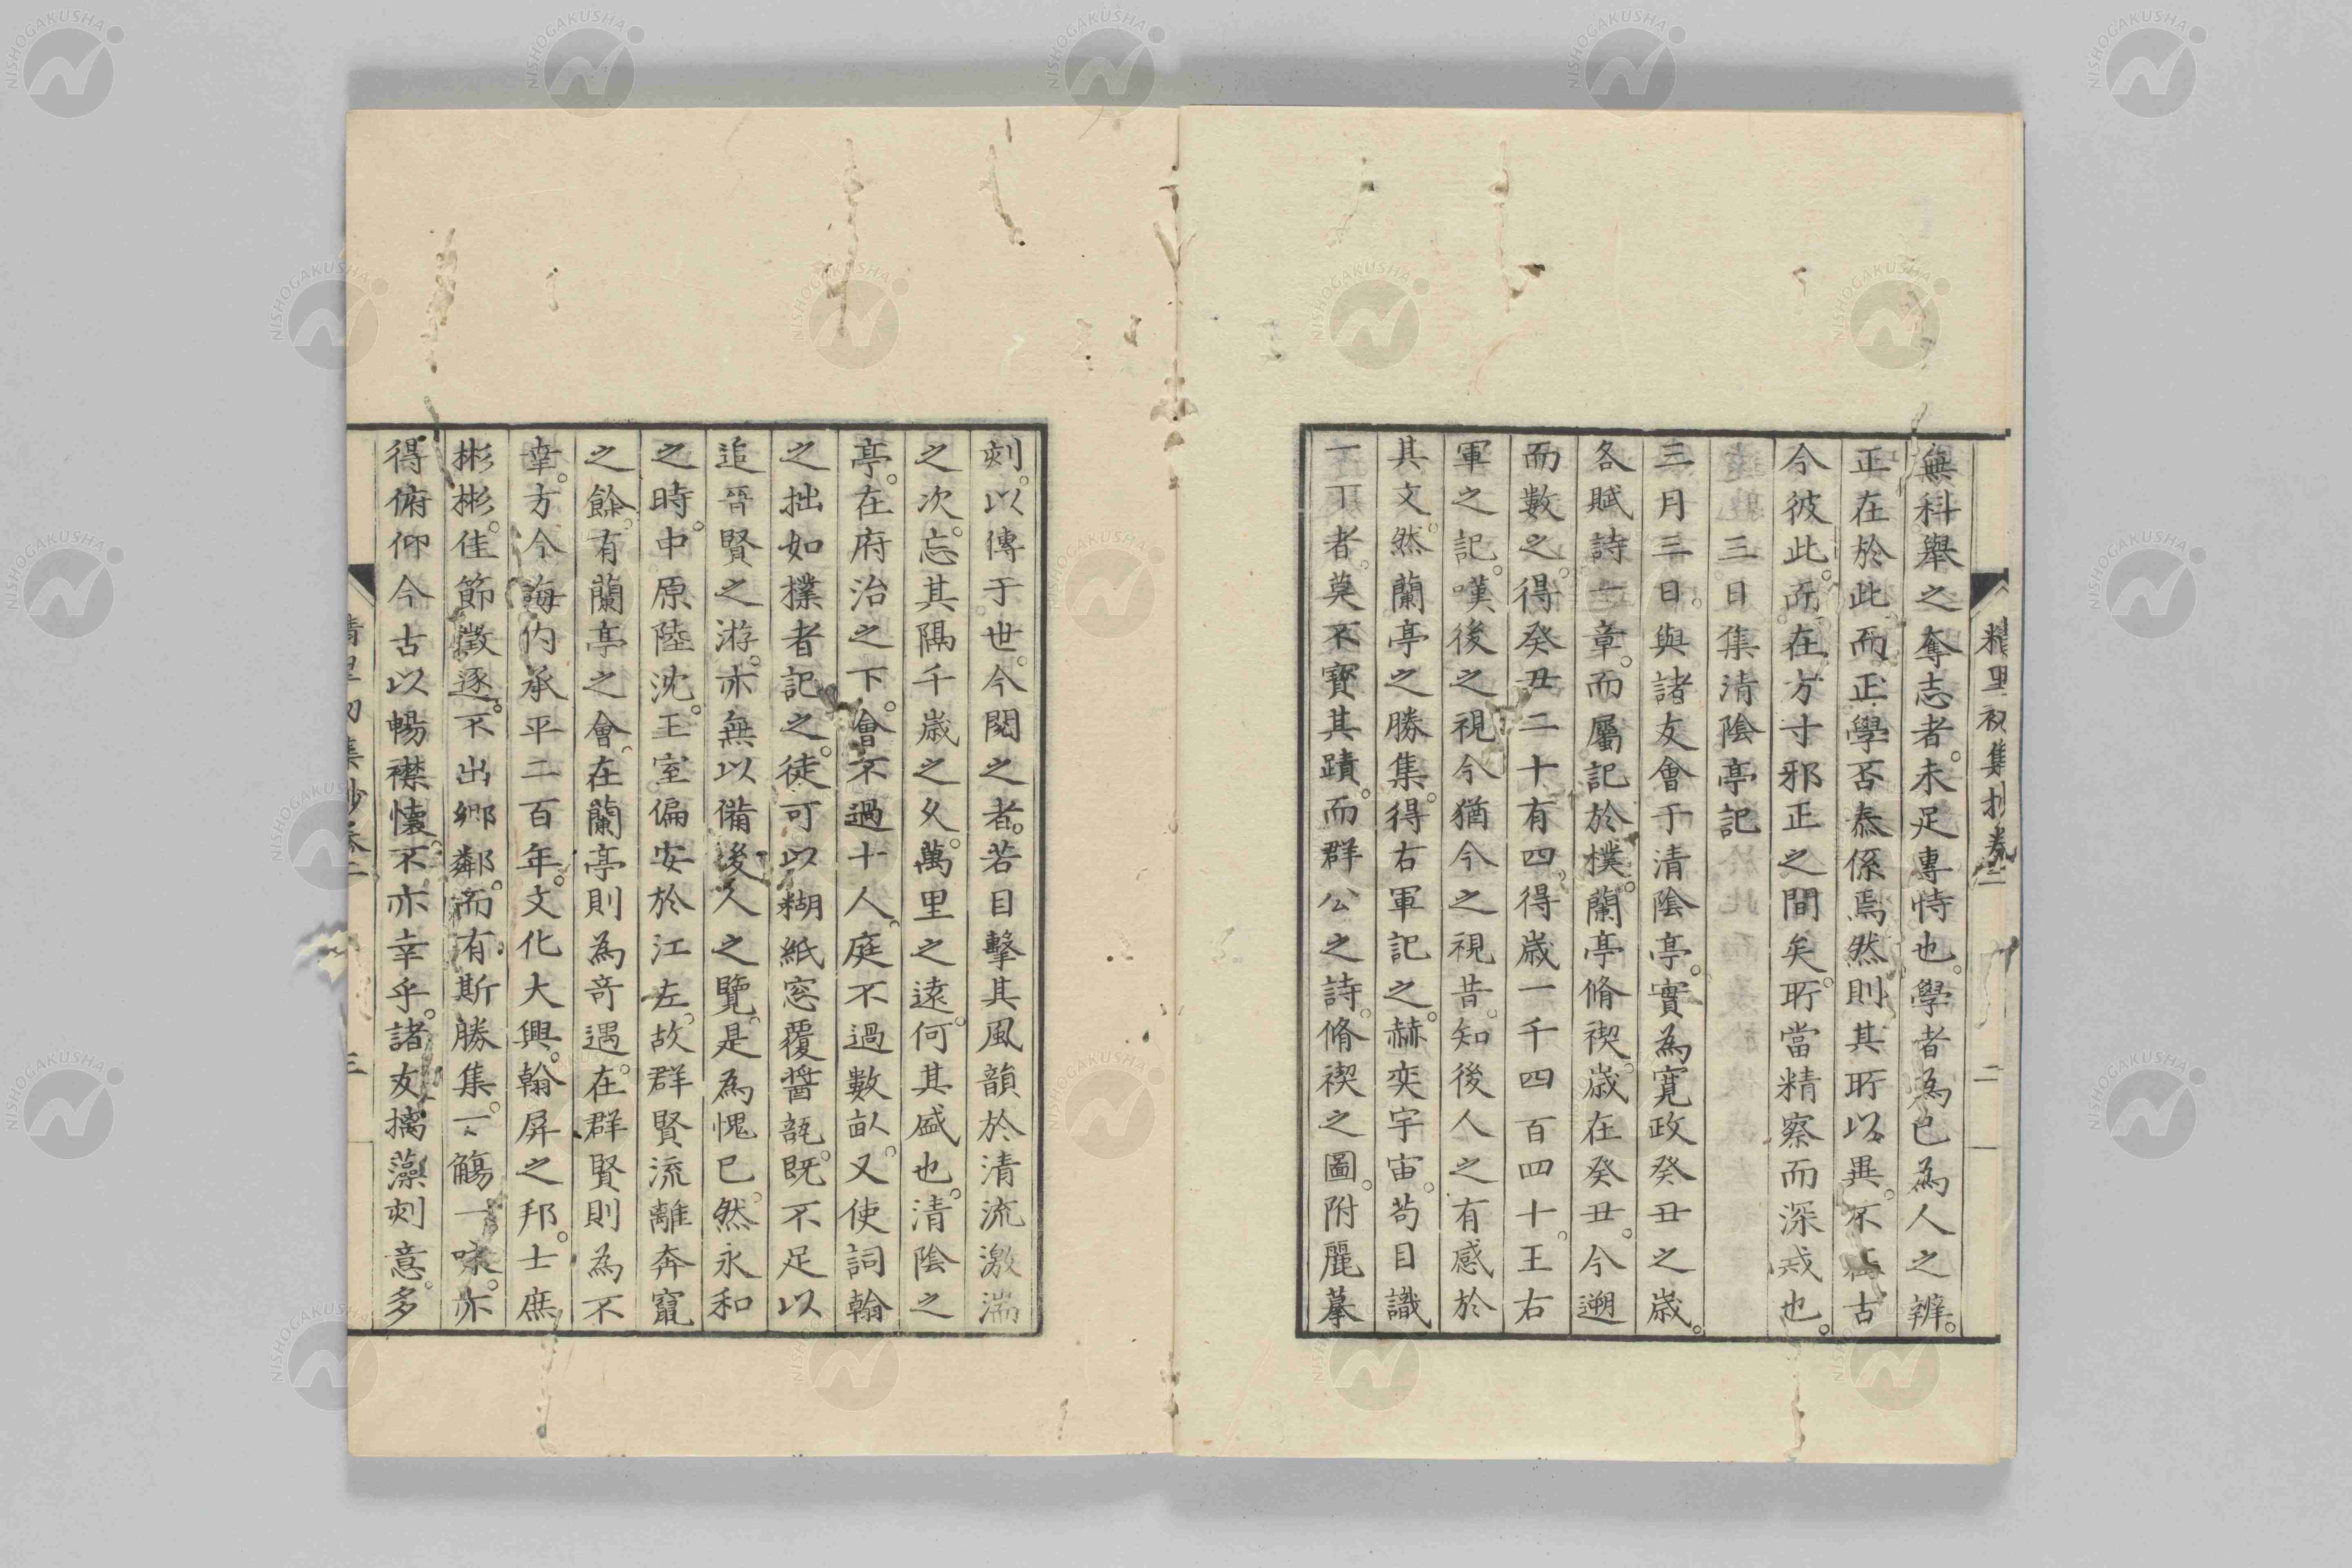 精里初集抄卷二
二
無科舉之奪志者。未足專恃也。學者為己為人之辨。
正在於此。而正學否泰係焉。然則其所以異。不在古
今彼此。而在方寸邪正之間矣。所當精察而深戒也。
三日集清陰亭記
三月三日。與諸友會于清陰亭。實為寛政癸丑之歳。
各賦詩一章。而屬記於樸。蘭亭脩禊。歳在癸丑。今遡
而數之。得癸丑二十有四。得歳一千四百四十。王右
軍之記。嘆後之視今猶今之視昔。知後人之有感於
其文。然蘭亭之勝集。得右軍記之。赫奕宇宙。苟目識
一丁者。莫不寳其蹟。而群公之詩。脩禊之圖。附麗摹
刻。以傳于世。今閱之者。若目擊其風韻於清流激湍
之次。忘其隔千歳之久。萬里之遠。何其盛也。清陰之
亭。在府治之下。會不過十人。庭不過數畝。又使詞翰
之拙如樸者記之。徒可以糊紙窓覆醤瓿。既不足以
追晉賢之游。亦無以備後人之覽。是為愧已。然永和
之時。中原陸沈。王室偏安於江左。故群賢流離奔竄
之餘。有蘭亭之會。在蘭亭則為奇遇。在群賢則為不
幸。方今海内承平二百年。文化大興。翰屏之邦。士庶
彬彬。佳節徵逐。不出郷鄰。而有斯勝集。一觴一咏。亦
得俯仰今古以暢襟懐。不亦幸乎。諸友摛藻刻意。多
精里初集抄卷二
三
NISHOGAKUSHA